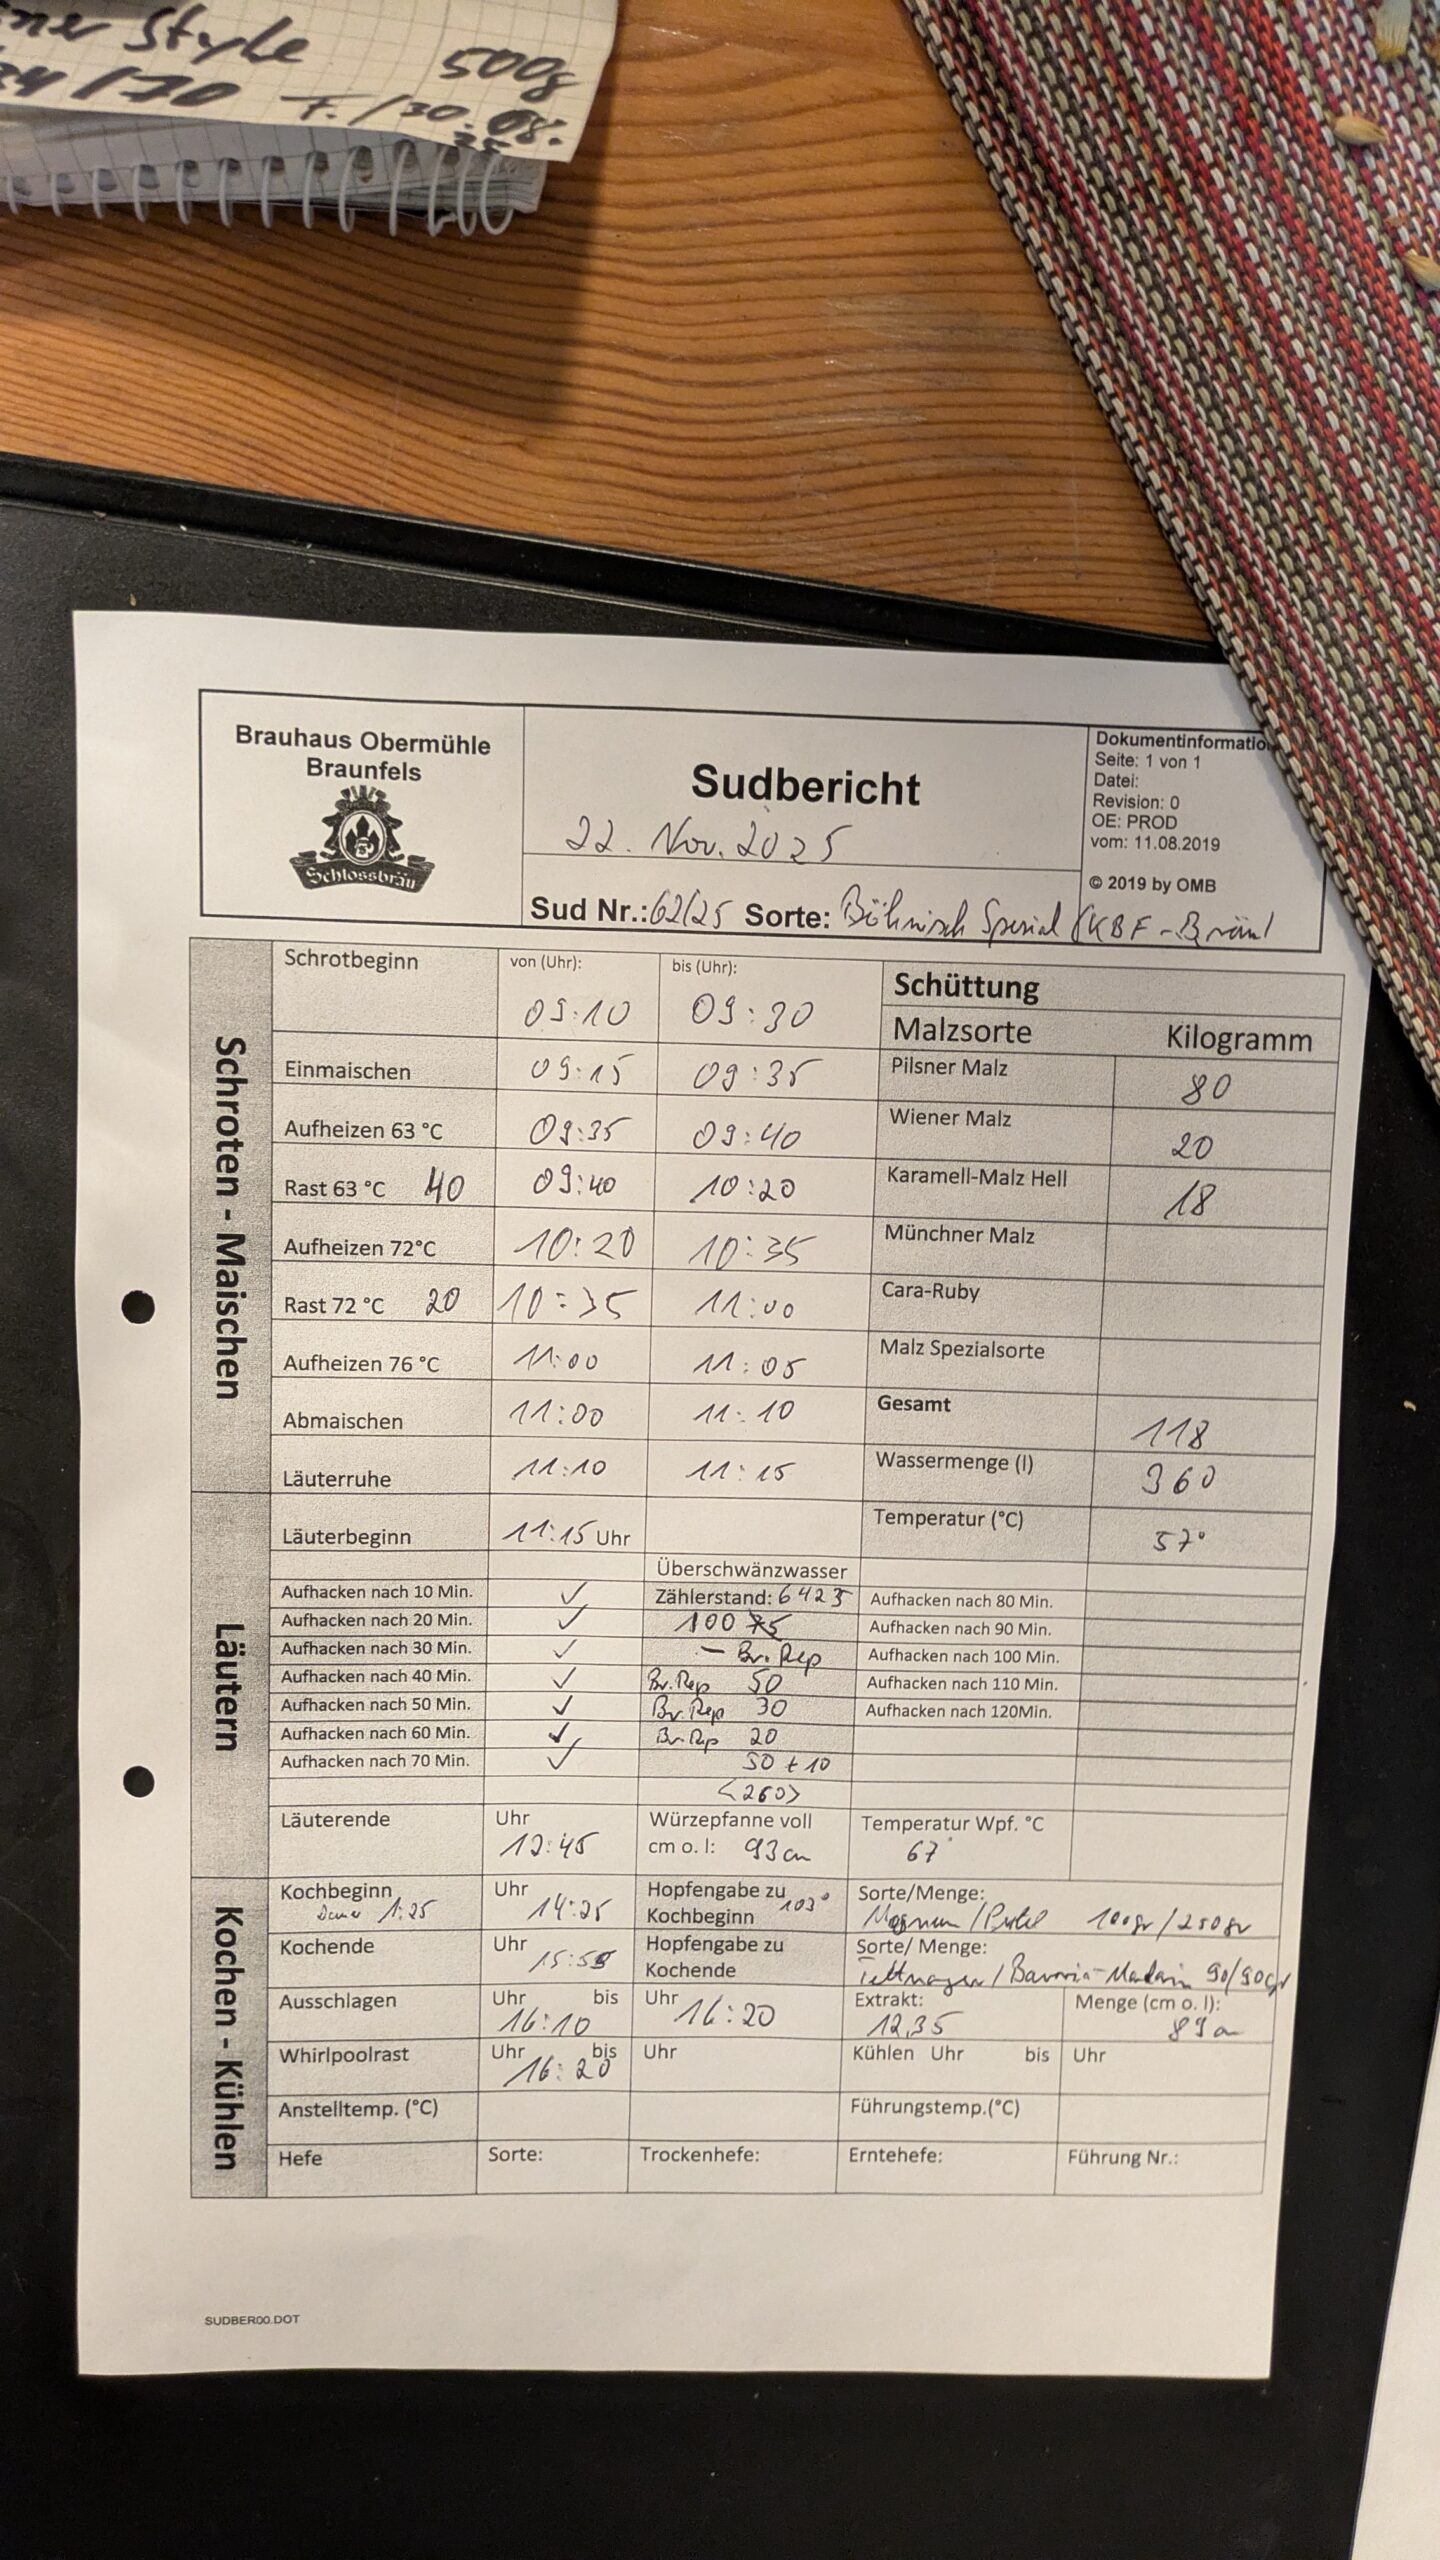 Style 500g
/70 F./30.08.
Brauhaus Obermühle
Braunfels
Schlossbräu
Sudbericht
22. Nov. 2025
Sud Nr.: 62/25 Sorte: Böhmisch Spezial
Dokumentinformatio
Seite: 1 von 1
Datei:
Revision: 0
OE: PROD
vom: 11.08.2019
© 2019 by OMB
Schroten - Maischen
Schrotbeginn von (Uhr): 09:10 bis (Uhr): 09:30
Schüttung
Malzsorte Kilogramm
Einmaischen 09:15 09:35 Pilsner Malz 80
Aufheizen 63 °C 09:35 09:40 Wiener Malz 20
Rast 63 °C 40 09:40 10:20 Karamell-Malz Hell 18
Aufheizen 72°C 10:20 10:35 Münchner Malz
Rast 72 °C 20 10:35 11:00 Cara-Ruby
Aufheizen 76 °C 11:00 11:05 Malz Spezialsorte
Abmaischen 11:00 11:10 Gesamt 118
Läuterruhe 11:10 11:15 Wassermenge (l) 360
Läutern
Läuterbeginn 11:15 Uhr Temperatur (°C) 57°
Überschwänzwasser
Aufhacken nach 10 Min. ✓ Zählerstand: 6423 Aufhacken nach 80 Min.
Aufhacken nach 20 Min. ✓ 100 Aufhacken nach 90 Min.
Aufhacken nach 30 Min. ✓ – Br. Rep Aufhacken nach 100 Min.
Aufhacken nach 40 Min. ✓ Br. Rep 50 Aufhacken nach 110 Min.
Aufhacken nach 50 Min. ✓ Br. Rep 30 Aufhacken nach 120Min.
Aufhacken nach 60 Min. ✓ Br. Rep 20
Aufhacken nach 70 Min. ✓ 50 + 10
<260>
Läuterende Uhr 12:45 Würzepfanne voll cm o. l: 93 cm Temperatur Wpf. °C 67°
Kochen - Kühlen
Kochbeginn Dauer 1:25 Uhr 14:25 Hopfengabe zu Kochbeginn 103° Sorte/Menge: Magnum / 100gr / 250gr
Kochende Uhr Hopfengabe zu Kochende Sorte/ Menge: Tettnanger / Bavaria-Mandarin 90/90gr
Ausschlagen Uhr bis 16:10 Uhr 16:20 Extrakt: 12,35 Menge (cm o. l):
Whirlpoolrast Uhr bis 16:20 Uhr Kühlen Uhr bis Uhr
Anstelltemp. (°C) Führungstemp.(°C)
Hefe Sorte: Trockenhefe: Erntehefe: Führung Nr.:
SUDBER00.DOT